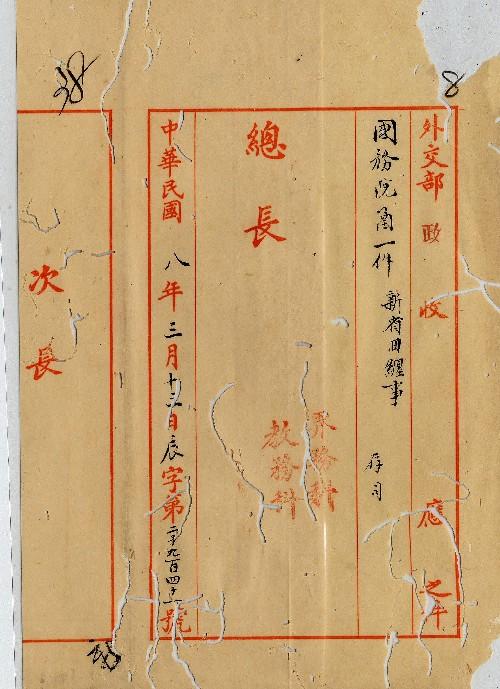 8
外交部 政 收 應 之件
國務院函一件 新省回纏事
存司
總長
界務科
教務科
中華民國 八年三月十三日辰字第二千九百四十一號
次長